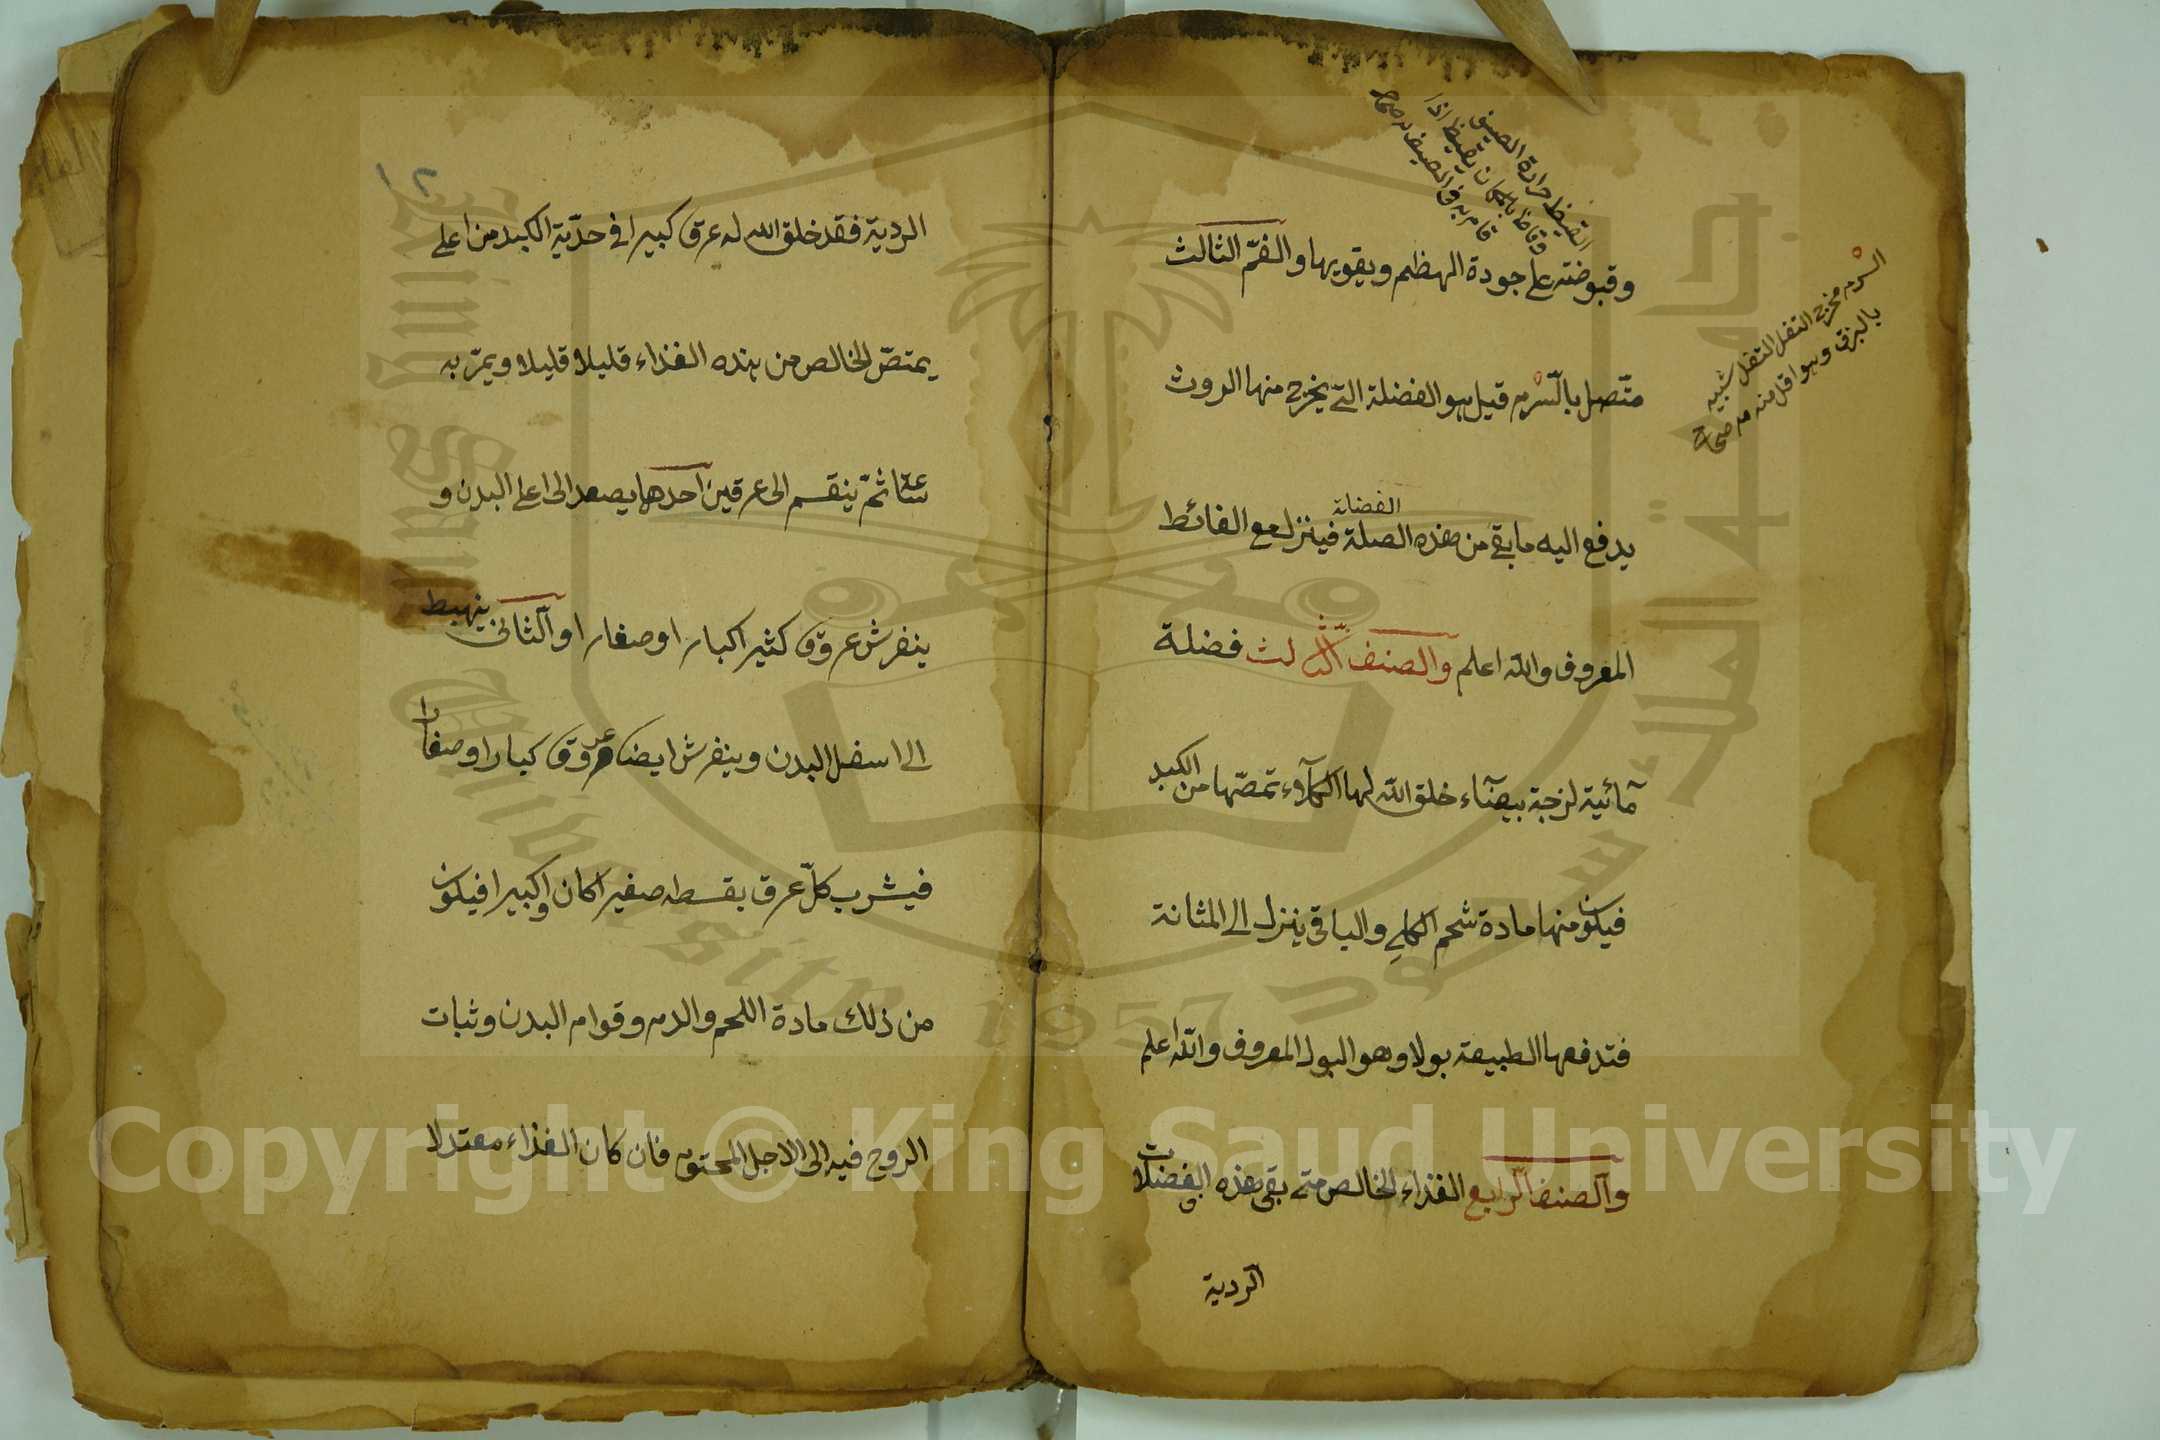 القيظ حرارة الصيف
وقاظ بالمكان يقيظ اذا
قام به في الصيف صحاح
السرم مخرج الثفل الثفل شبيه
بالبزق وهو اقل منه صحاح
وقبوضته على جودة الهظم ويقويها والفمّ الثالث
متّصل بالسّرم قيل هو الفضلة التي يخرج منها الروث
الفضلة
يدفع اليه ما بقي من هذه الصلة فينزل مع الغائط
المعروف والله اعلم والصنف الثالث فضلة
مائية لزجة بيضاء خلق الله لها الكلاوء تمصّها من الكبد
فيكون منها مادة شحم الكلي والباقي ينزل الى المثانة
فتدفعها الطبيعة بولا وهو البول المعروف والله اعلم
والصنف الرابع الغذاء الخالص متى بقي هذه الفضلات
الردية
١٢
الردية فقد خلق الله له عرق كبيرا في حدّبة الكبد من اعلى
يمتصّ الخالص من هذه الغذاء قليلا قليلا ويمرّ به
ثمّ ينقسم الى عرقين احدها يصعد الى اعلى البدن و
ينفرش عروق كثير اكبارا وصغارا والثاني ينهبط
الى اسفل البدن وينفرش ايضا عروق كبارا وصغارا
فيشرب كلّ عرق بقسطه صغيرا كان او كبيرا فيكون
من ذلك مادة اللحم والدم وقوام البدن وثبات
الروح فيه الى الاجل المحتوم فان كان الغذاء معتدلا
جامعة الملك سعود
King Saud University
1957
Copyright © King Saud University